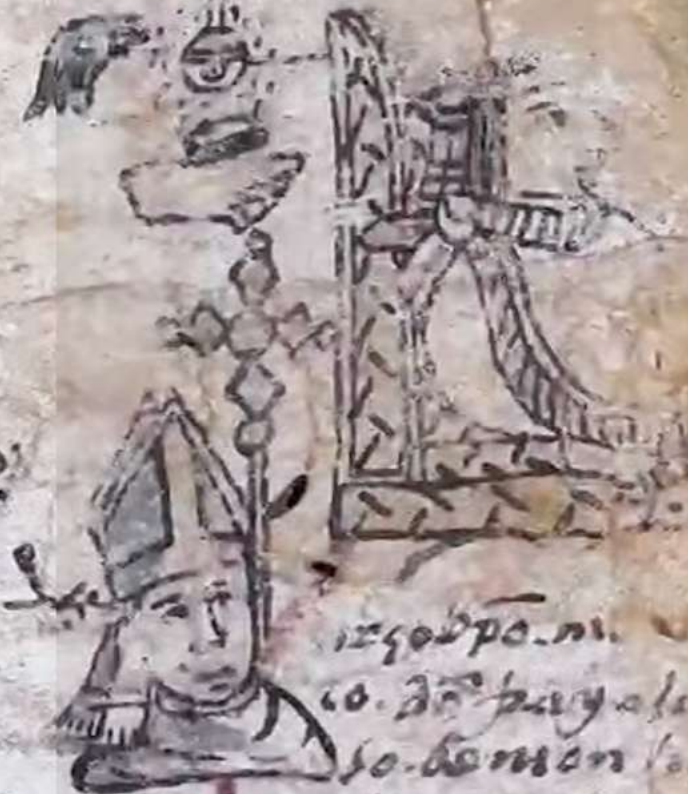 arçobpō. m
co. dō fray alo
so. demon